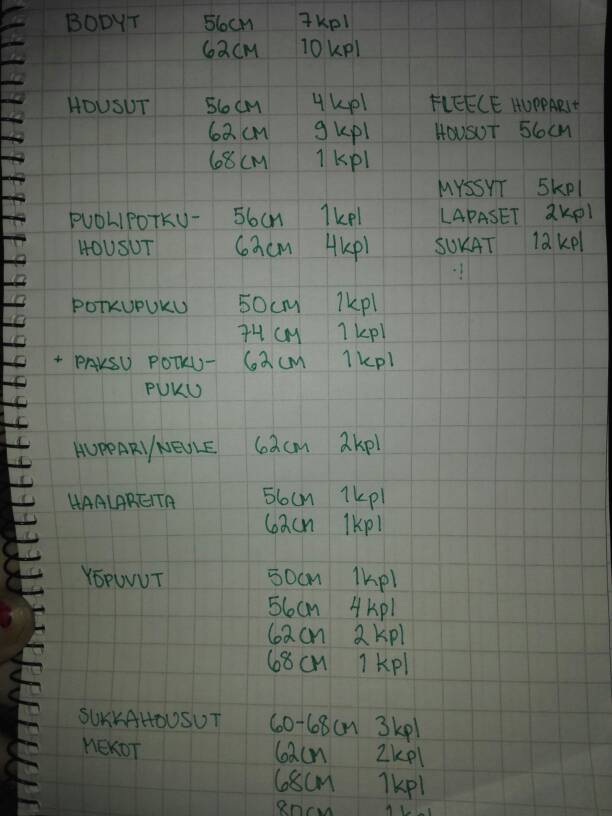 BODYT 56CM 7kpl
62CM 10kpl
HOUSUT 56CM 4kpl
62CM 9kpl
68CM 1kpl
PUOLIPOTKU- 56CM 1kpl
HOUSUT 62CM 4kpl
POTKUPUKU 50CM 1kpl
74CM 1kpl
+ PAKSU POTKU- 62CM 1kpl
PUKU
HUPPARI/NEULE 62CM 2kpl
HAALAREITA 56CM 1kpl
62CM 1kpl
YÖPUVUT 50CM 1kpl
56CM 4kpl
62CM 2kpl
68CM 1kpl
SUKKAHOUSUT 60-68CM 3kpl
MEKOT 62CM 2kpl
68CM 1kpl
80CM 1kpl
FLEECE HUPPARI+
HOUSUT 56CM
MYSSYT 5kpl
LAPASET 2kpl
SUKAT 12kpl